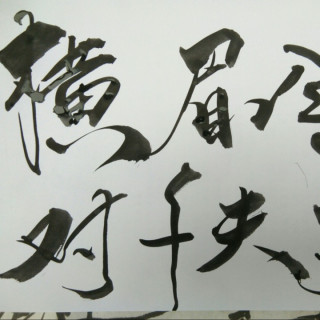 横眉冷
对千夫